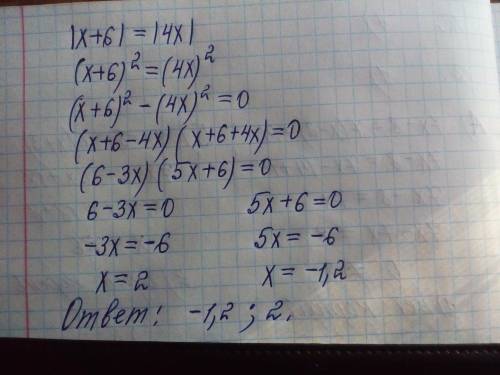 |x+6| = |4x|
(x+6)² = (4x)²
(x+6)² - (4x)² = 0
(x+6-4x)(x+6+4x)=0
(6-3x)(5x+6)=0
6-3x=0 5x+6=0
-3x=-6 5x=-6
x=2 x=-1,2
Ответ: -1,2; 2.